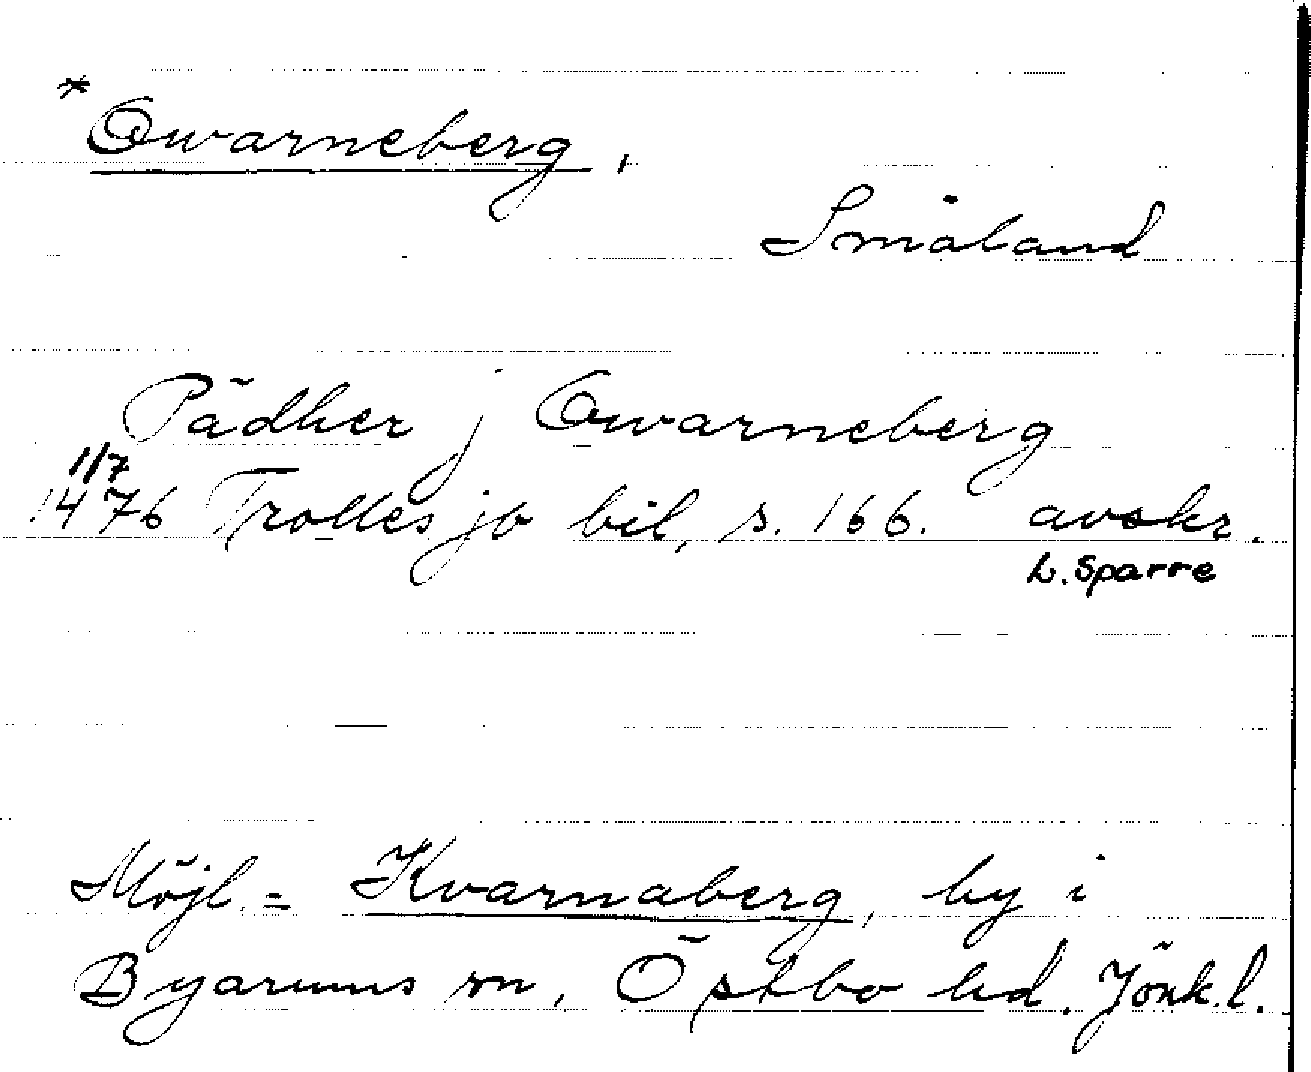 * Qwarneberg,
Småland
Pädher j Qwarneberg
1/7
1476 Trolles jb bil, s. 166. avskr.
L. Sparre
Möjl. = Kvarnaberg, by i
Byarums sn, Östbo hd. Jönk.l.